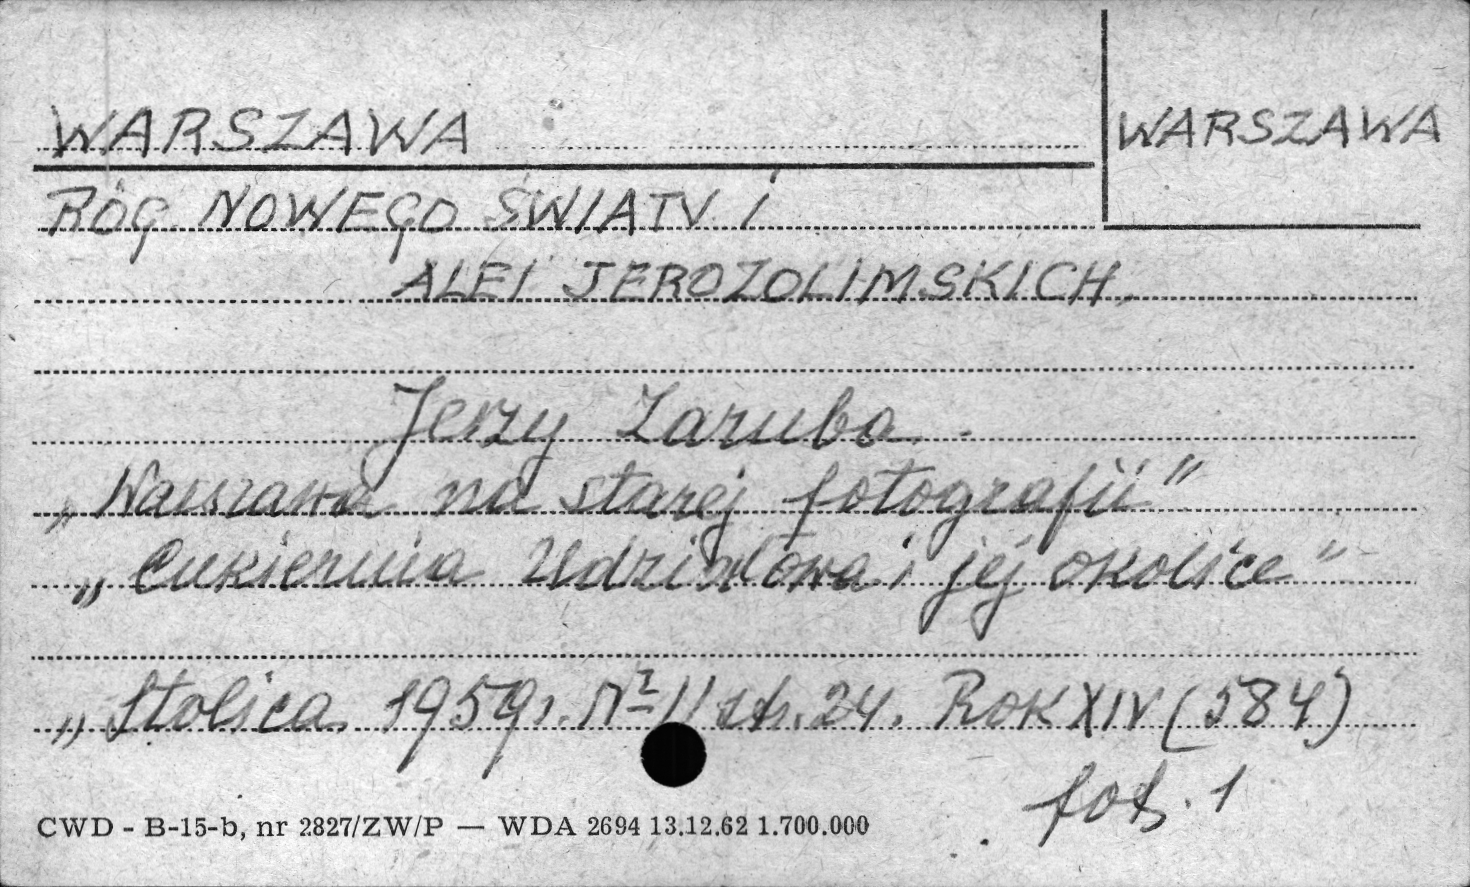 WARSZAWA
WARSZAWA
RÓG NOWEGO ŚWIATU I
ALEI JEROZOLIMSKICH,
Jerzy Zaruba.
„Warszawa na starej fotografii"
„Cukiernia Udziałowa i jej okolice"
„Stolica 1959r. Nr 11 str. 24. Rok XIV (584)
fot. 1
CWD - B-15-b, nr 2827/ZW/P — WDA 2694 13.12.62 1.700.000